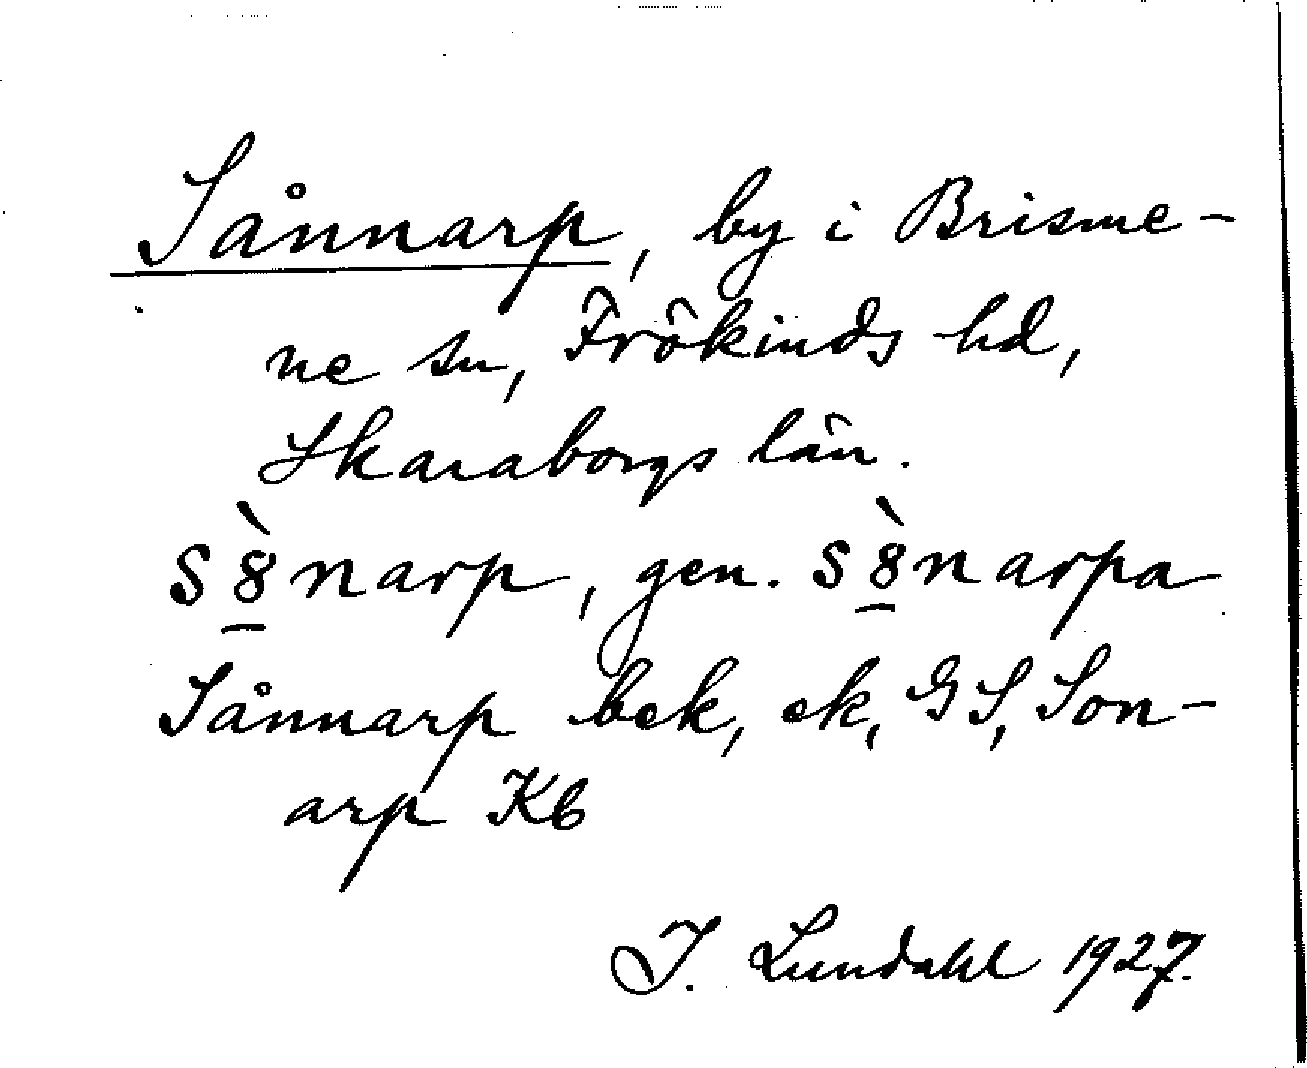 Sånnarp, by i Brisme-
ne sn, Frökinds hd,
Skaraborgs län.
s8̱̀narp, gen. s8̱̀narpa
Sånnarp bek, ek, GS, Son-
arp Kb
I. Lundahl 1927.